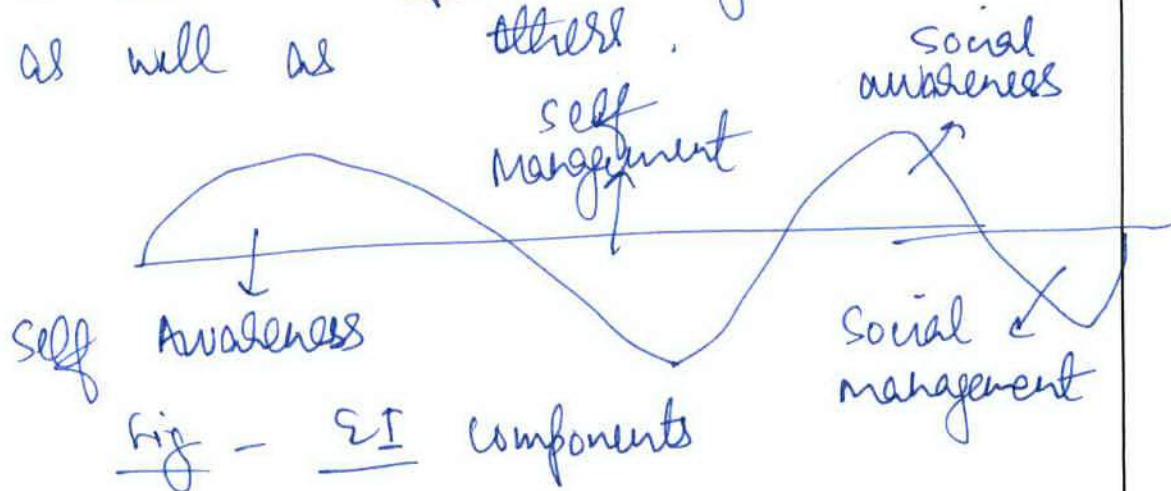 as well as others.
social
awareness
self
Management
Self Awareness
Social
management
Fig - EI components